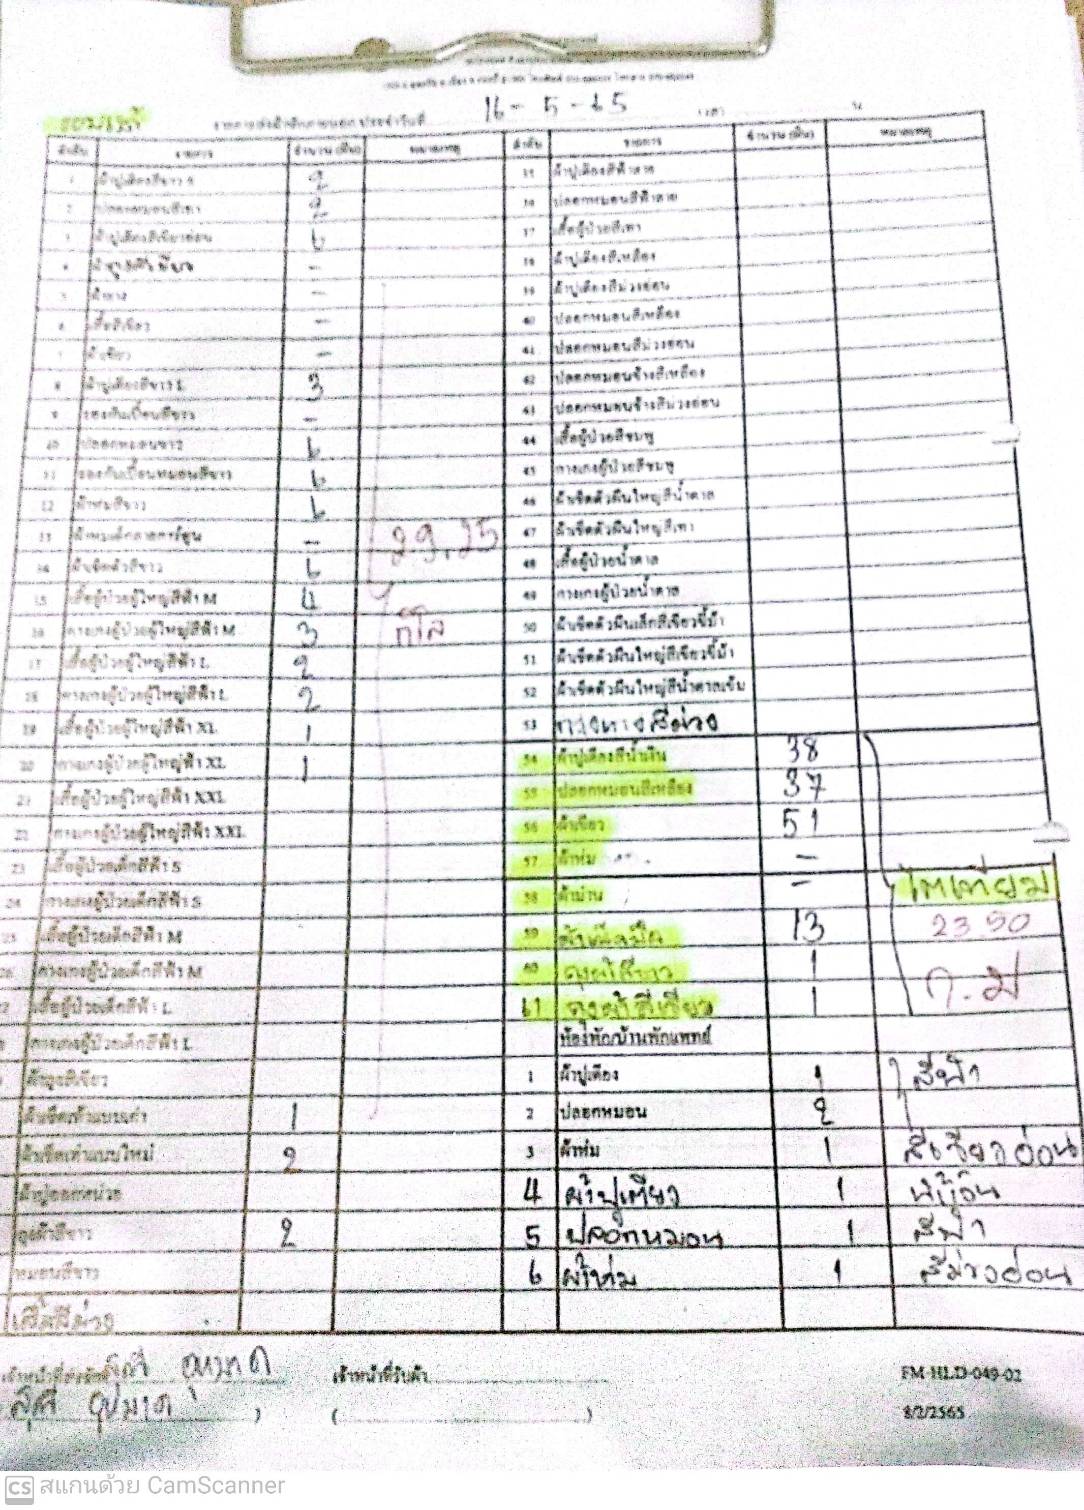 16-5-65
รายการส่งผ้าซักภายนอก ประจำวันที่
ลำดับ รายการ จำนวน (ผืน) หมายเหตุ ลำดับ รายการ จำนวน (ผืน) หมายเหตุ
1 ผ้าปูเตียงสีขาว 2 35 ผ้าปูเตียงสีฟ้าลาย
2 ปลอกหมอนสีเทา 2 36 ปลอกหมอนสีฟ้าลาย
3 ผ้าปูเตียงสีเขียวอ่อน 6 37 เสื้อผู้ป่วยสีเทา
4 - 38 ผ้าปูเตียงสีเหลือง
5 ผ้ายาง - 39 ผ้าปูเตียงสีม่วงอ่อน
6 เสื้อสีเขียว - 40 ปลอกหมอนสีเหลือง
7 ผ้าเขียว - 41 ปลอกหมอนสีม่วงอ่อน
8 ผ้าปูเตียงสีขาว L 3 42 ปลอกหมอนข้างสีเหลือง
9 รองกันเปื้อนสีขาว - 43 ปลอกหมอนข้างสีม่วงอ่อน
10 ปลอกหมอนขาว 6 44 เสื้อผู้ป่วยสีชมพู
11 รองกันเปื้อนหมอนสีขาว 6 45 กางเกงผู้ป่วยสีชมพู
12 ผ้าห่มสีขาว 6 46 ผ้าเช็ดตัวผืนใหญ่สีน้ำตาล
13 ผ้าห่มเด็กลายการ์ตูน - 29.25 47 ผ้าเช็ดตัวผืนใหญ่สีเทา
14 ผ้าเช็ดตัวสีขาว 6 48 เสื้อผู้ป่วยน้ำตาล
15 เสื้อผู้ป่วยผู้ใหญ่สีฟ้า M 4 49 กางเกงผู้ป่วยน้ำตาล
16 กางเกงผู้ป่วยผู้ใหญ่สีฟ้า M 3 กิโล 50 ผ้าเช็ดตัวผืนเล็กสีเขียวขี้ม้า
17 เสื้อผู้ป่วยผู้ใหญ่สีฟ้า L 2 51 ผ้าเช็ดตัวผืนใหญ่สีเขียวขี้ม้า
18 กางเกงผู้ป่วยผู้ใหญ่สีฟ้า L 2 52 ผ้าเช็ดตัวผืนใหญ่สีน้ำตาลเข้ม
19 เสื้อผู้ป่วยผู้ใหญ่สีฟ้า XL 1 53
20 กางเกงผู้ป่วยผู้ใหญ่ฟ้า XL 1 54 ผ้าปูเตียงสีน้ำเงิน 38
21 เสื้อผู้ป่วยผู้ใหญ่สีฟ้า XXL 55 ปลอกหมอนสีเหลือง 37
22 กางเกงผู้ป่วยผู้ใหญ่สีฟ้า XXL 56 ผ้าเขียว 51
23 เสื้อผู้ป่วยเด็กสีฟ้า S 57 ผ้าห่ม -
24 กางเกงผู้ป่วยเด็กสีฟ้า S 58 ผ้าม่าน - ไตเทียม
25 เสื้อผู้ป่วยเด็กสีฟ้า M 59 ผ้าเช็ดมือ 13 23.90
26 กางเกงผู้ป่วยเด็กสีฟ้า M 60 ถุงผ้าสีขาว 1
27 เสื้อผู้ป่วยเด็กสีฟ้า L 61 ถุงผ้าสีเขียว 1 ก.ม
กางเกงผู้ป่วยเด็กสีฟ้า L ห้องพัก/บ้านพักแพทย์
ผ้าถุงสีเขียว 1 ผ้าปูเตียง 1 สีฟ้า
ผ้าเช็ดเท้าแบบเก่า 1 2 ปลอกหมอน 2
ผ้าเช็ดเท้าแบบใหม่ 2 3 ผ้าห่ม 1 สีเขียวอ่อน
4 ผ้าปูเตียว 1
ถุงผ้าสีขาว 2 5 ปลอกหมอน 1 สีฟ้า
หมอนสีขาว 6 ผ้าห่ม 1 สีม่วงอ่อน
เจ้าหน้าที่ส่งผ้า เจ้าหน้าที่รับผ้า FM-HLD-049-02
) ( ) 8/2/2565
CS สแกนด้วย CamScanner